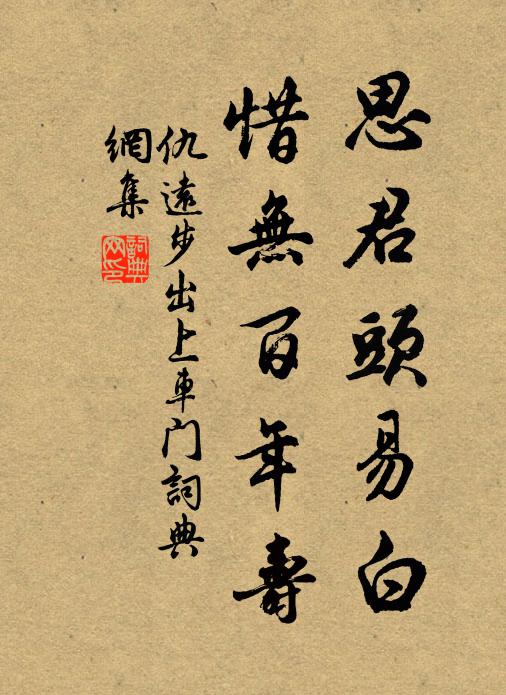 思君頭易白
惜無百年壽
仇遠步出上車門詞典
網集
詞典
网印